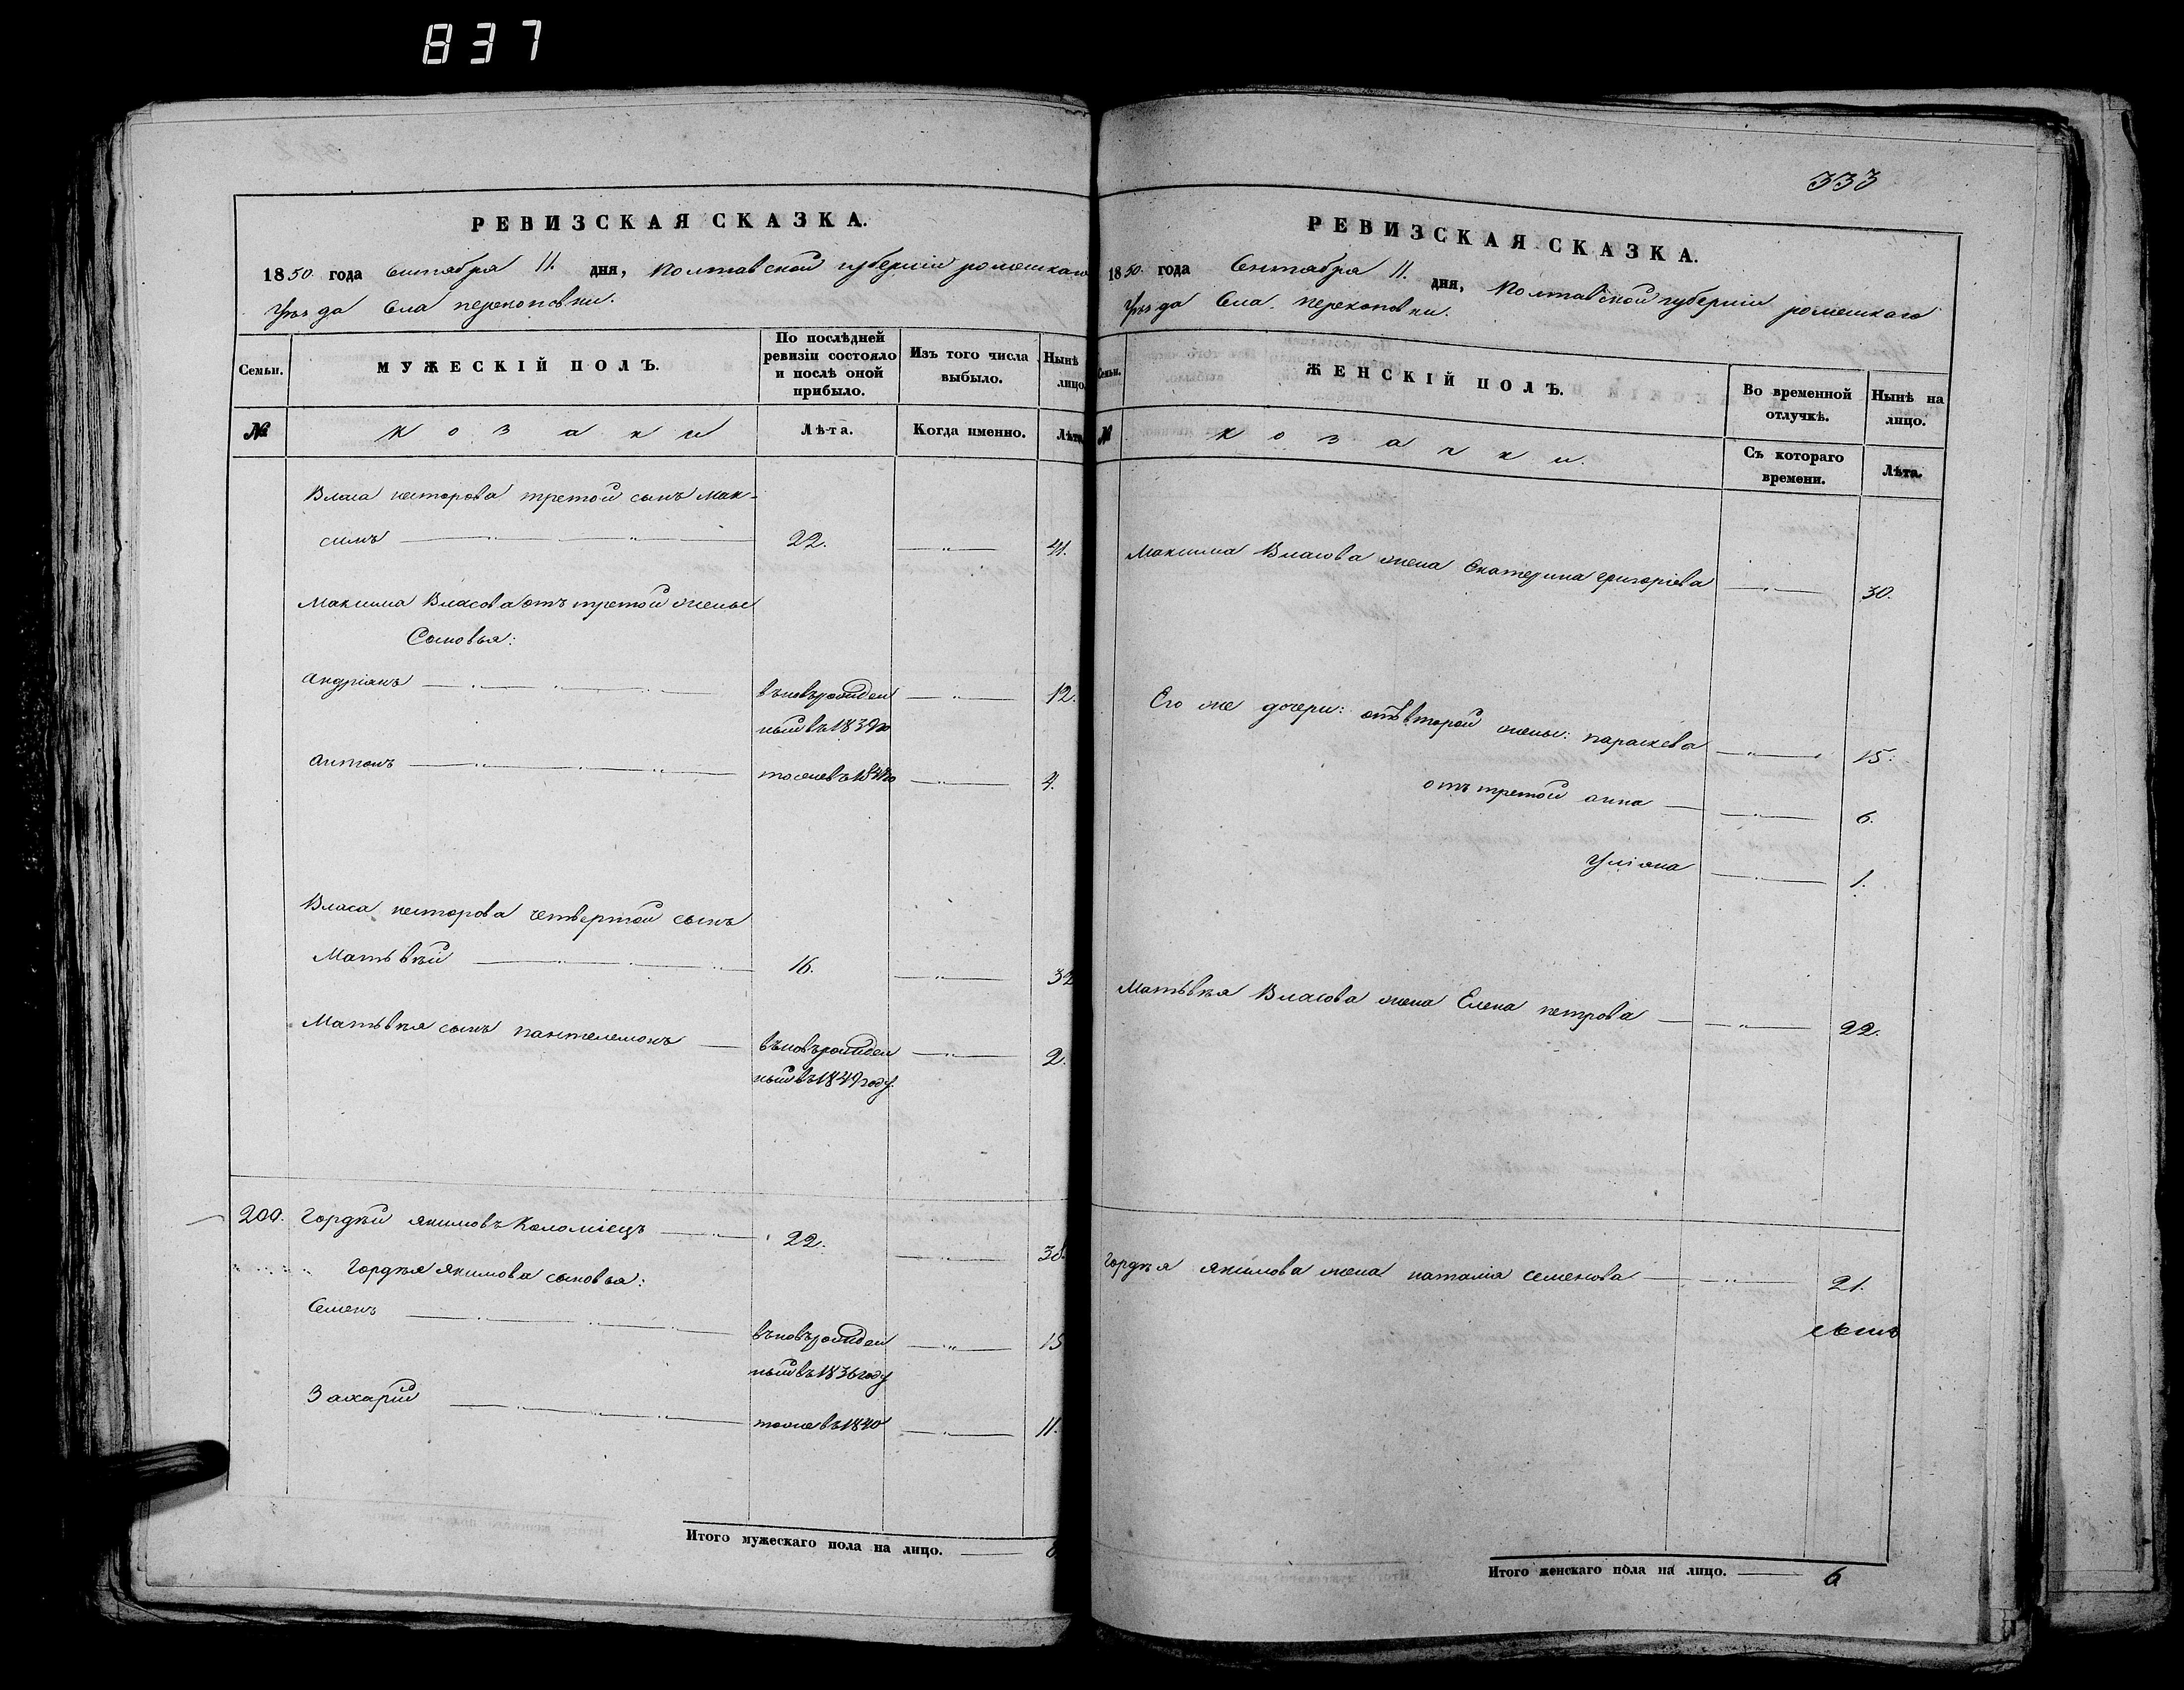 837
РЕВИЗСКАЯ СКАЗКА.
1850 года Сентября 11. дня, Полтавской губернiи роменскаго
Уѣзда Села перекоповки.
Семьи.
МУЖЕСКІЙ ПОЛЪ.
По послѣдней
ревизіи состояло
и послѣ оной
прибыло.
Изъ того числа
выбыло.
Нынѣ
лицо
№
Козаки
Лѣта.
Когда именно.
Лѣта
Власа несторова третой сынъ Мак-
симъ 22. 41.
Максима Власова отъ третой жены
Сыновья:
Андріянъ въновърожден 12.
ный въ 1839го
Антонъ тоже въ 4.
Власа несторова четвертой сынъ
Матьвѣй 16. 32
Матьвѣя сынъ пантелемонъ въновърожден 2.
ный въ 1849 году.
200. Гордѣй якимовъ Коломіецъ 22. 38.
Гордѣя Якимова сыновья:
Семенъ въновърожден 15
ный въ 1836 году
Захарій тоже въ 1840 11.
Итого мужескаго пола на лицо.
333
РЕВИЗСКАЯ СКАЗКА.
1850. года Сентября 11. дня, Полтавской губерніи роменскаго
Уѣзда Села перекоповки.
Семьи.
ЖЕНСКІЙ ПОЛЪ.
Во временной
отлучкѣ.
Нынѣ на
лицо.
№
Козачки.
Съ котораго
времени.
Лѣта.
Максима Власова жена Екатерина григоріева 30.
Его же дочери: отъ второй жены: параскева 15.
отъ третой анна 6.
Уліяна 1.
Матьвѣя Власова жена Елена петрова 22.
Гордѣя якимова жена наталія семенова 21.
Итого женскаго пола на лицо. 6